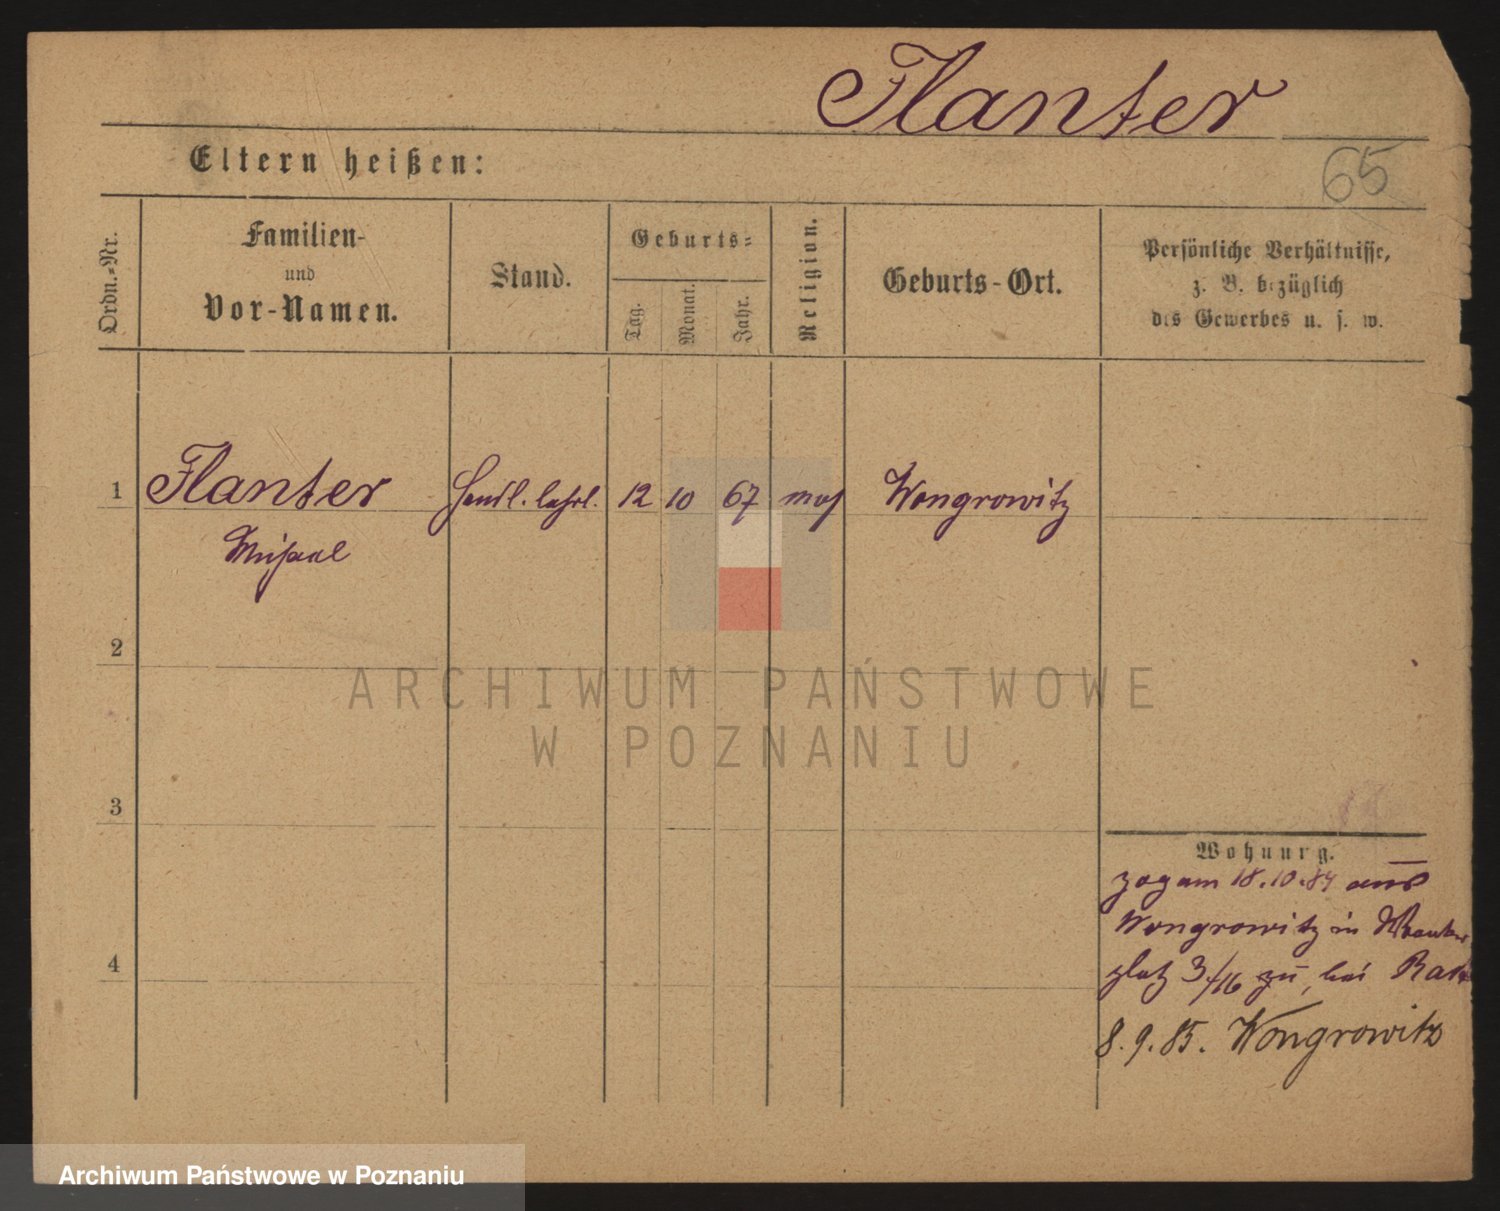 Flanter
Eltern heißen:
65
Ordn.-Nr.
Familien-
und
Vor-Namen.
Stand.
Geburts-
Tag.
Monat.
Jahr.
Religion.
Geburts-Ort.
Persönliche Verhältnisse,
z. B. bezüglich
des Gewerbes u. s. w.
1 Flanter Handl. lehrl. 12 10 67 mos Wongrowitz
2
ARCHIWUM PAŃSTWOWE
W POZNANIU
3
Wohnung.
zog am 18.10.84 aus
Wongrowitz in
platz 3/16 zu, bei
4
8.9.85. Wongrowitz
Archiwum Państwowe w Poznaniu